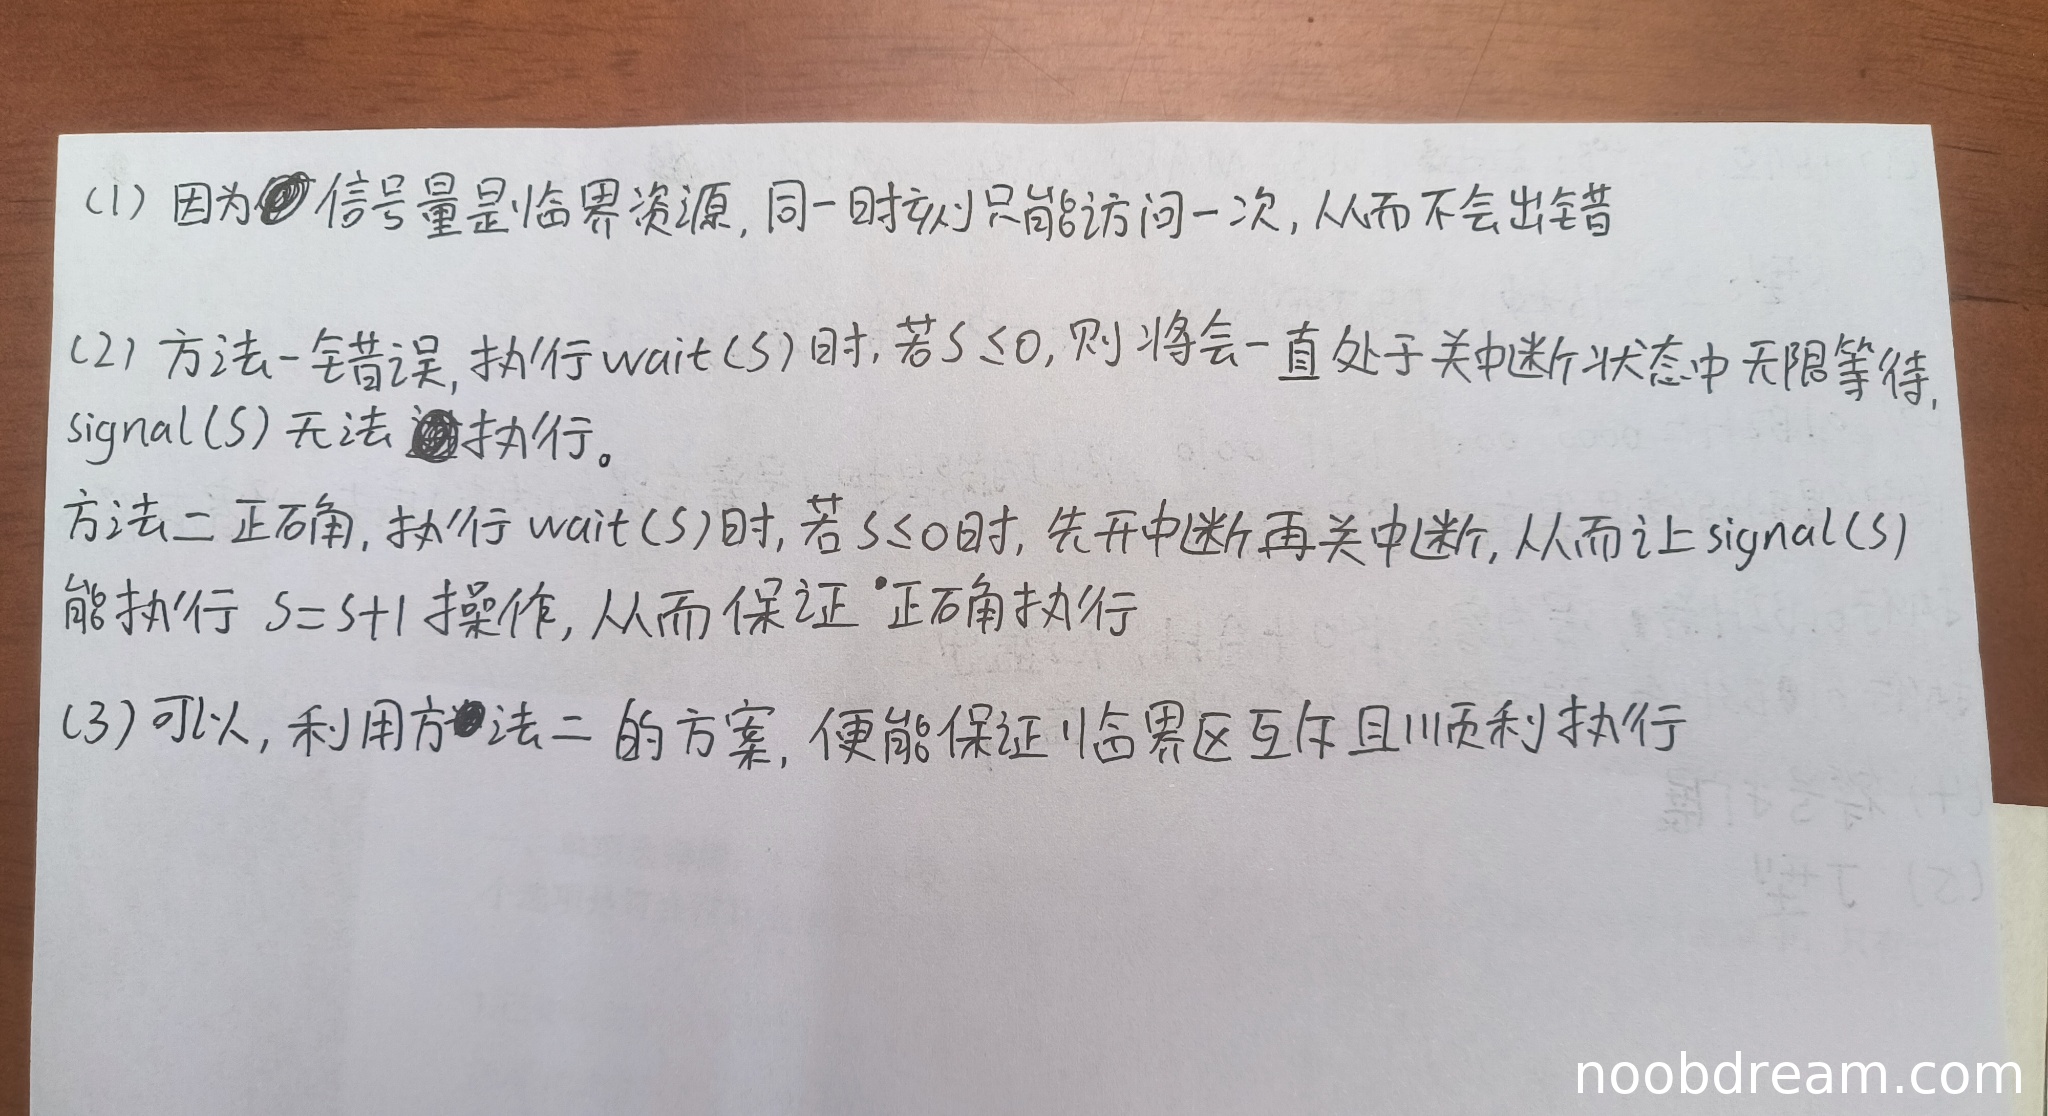 (1) 因为信号量是临界资源,同一时刻只能访问一次,从而不会出错
(2) 方法一错误,执行wait(S)时,若S≤0,则将会一直处于关中断状态中无限等待,
signal(S)无法执行。
方法二正确,执行wait(S)时,若S≤0时,先开中断再关中断,从而让signal(S)
能执行 S=S+1 操作,从而保证正确执行
(3) 可以,利用方法二的方案,便能保证临界区互斥且顺利执行
noobdream.com